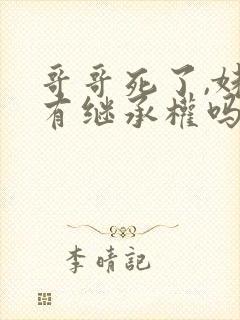 哥哥死了,妹
有继承權吗
李晴記